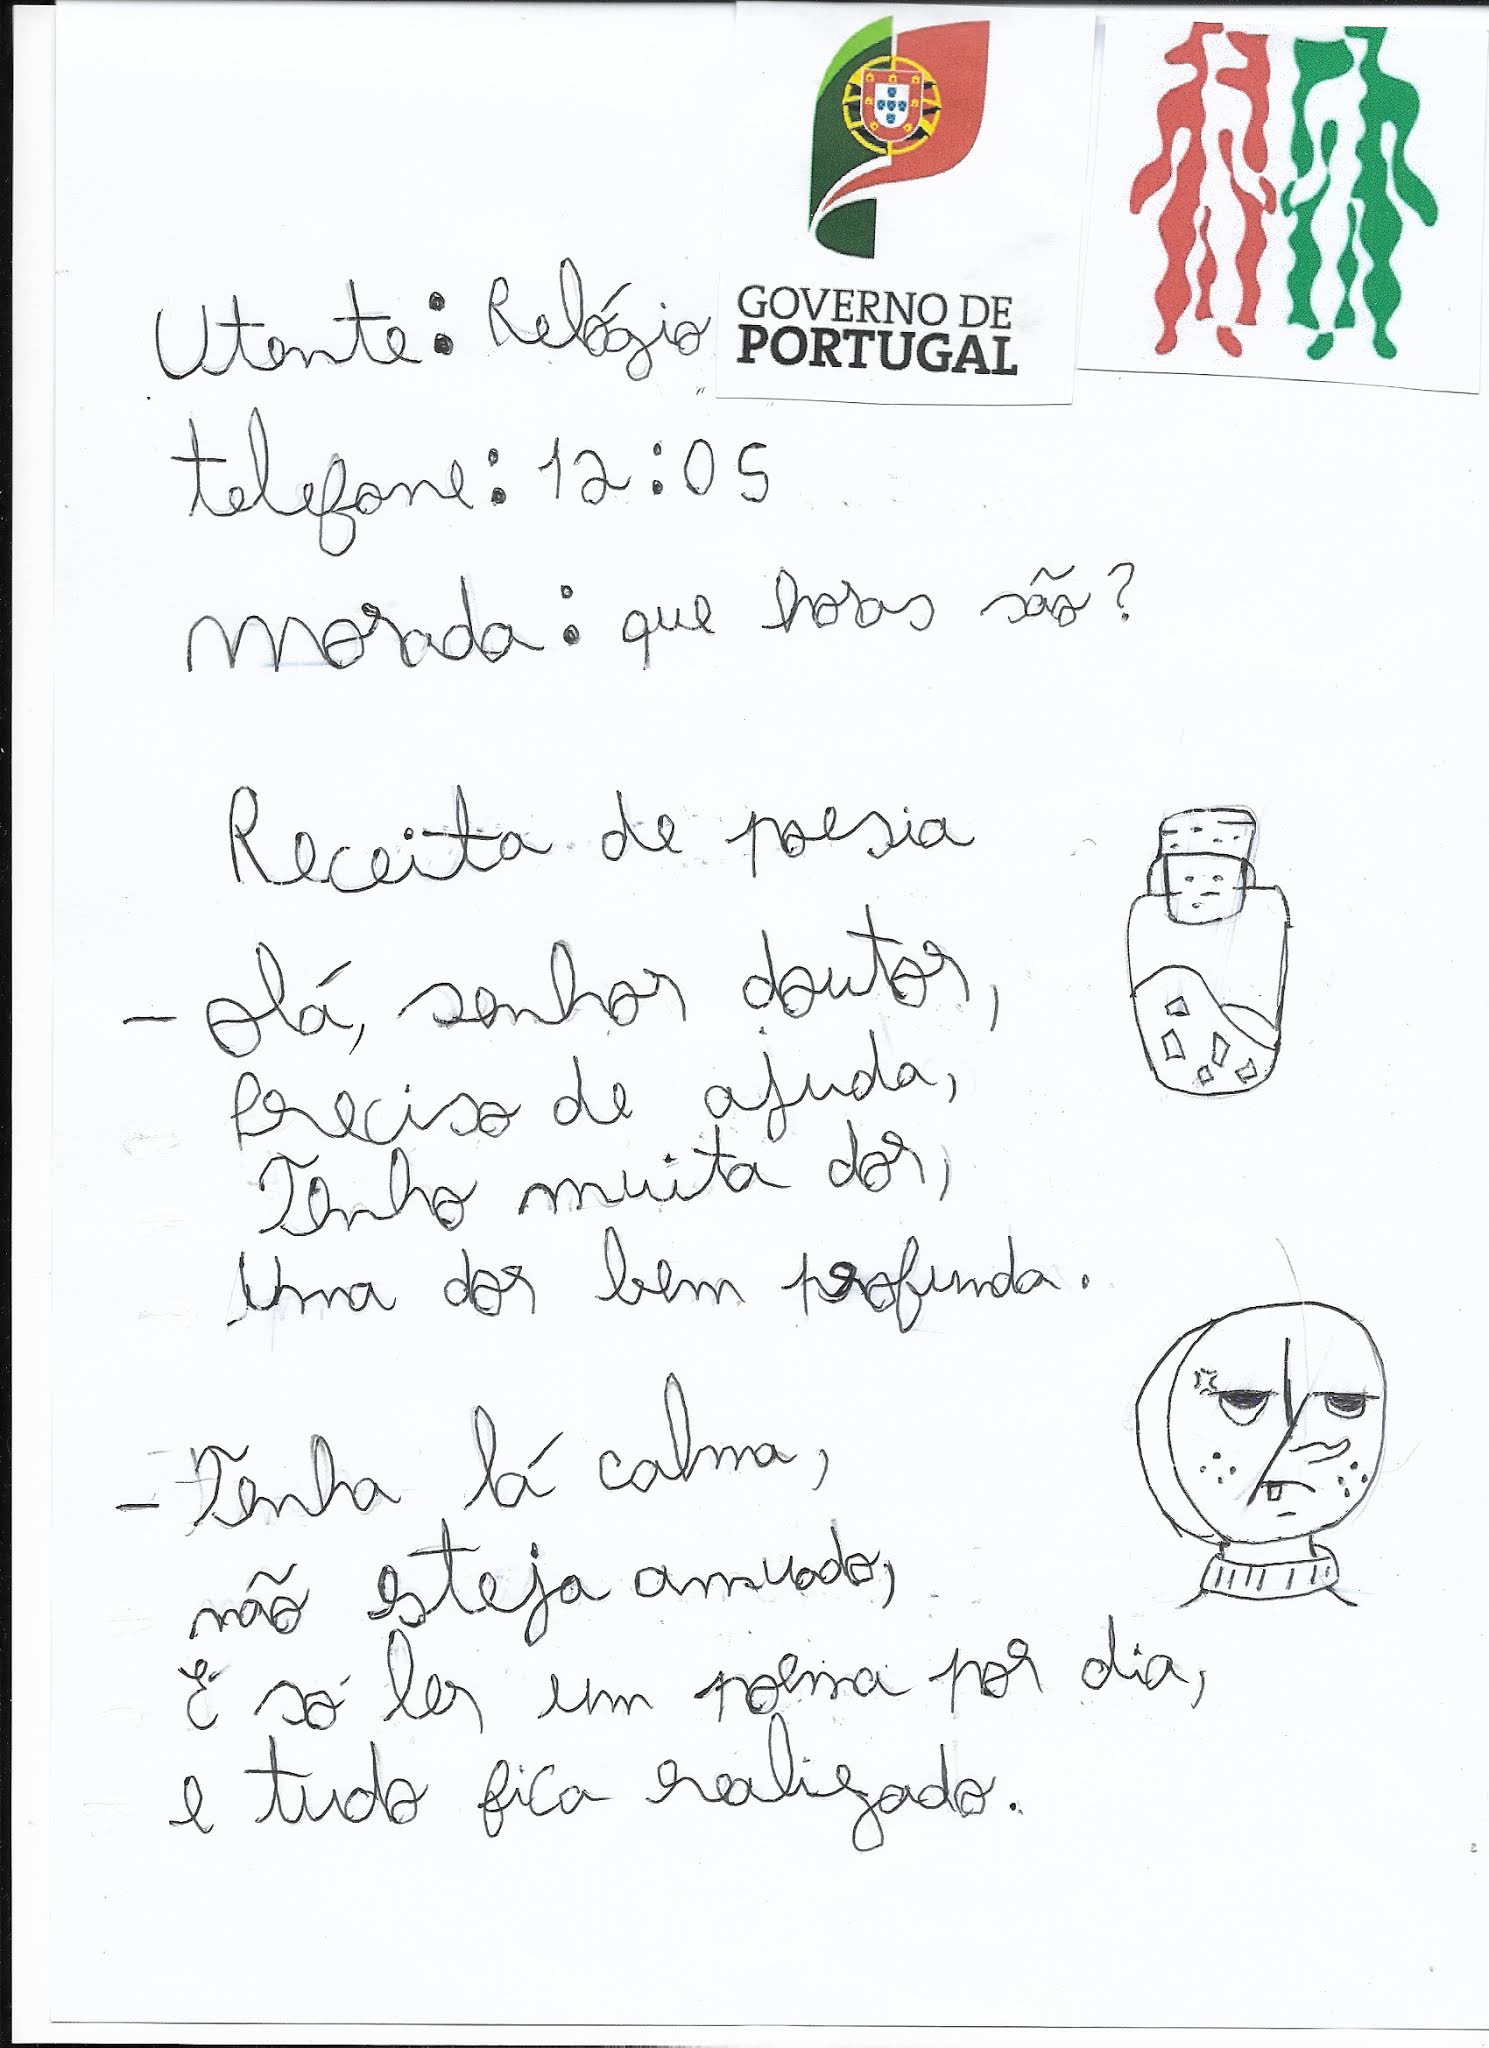 GOVERNO DE
PORTUGAL
Utente: Relógio
telefone: 12:05
morada: que horas são?
Receita de poesia
- Olá, senhor doutor,
Preciso de ajuda,
Tenho muita dor,
Uma dor bem profunda.
- Tenha lá calma,
não esteja amuado,
É só ler um poema por dia,
e tudo fica realizado.